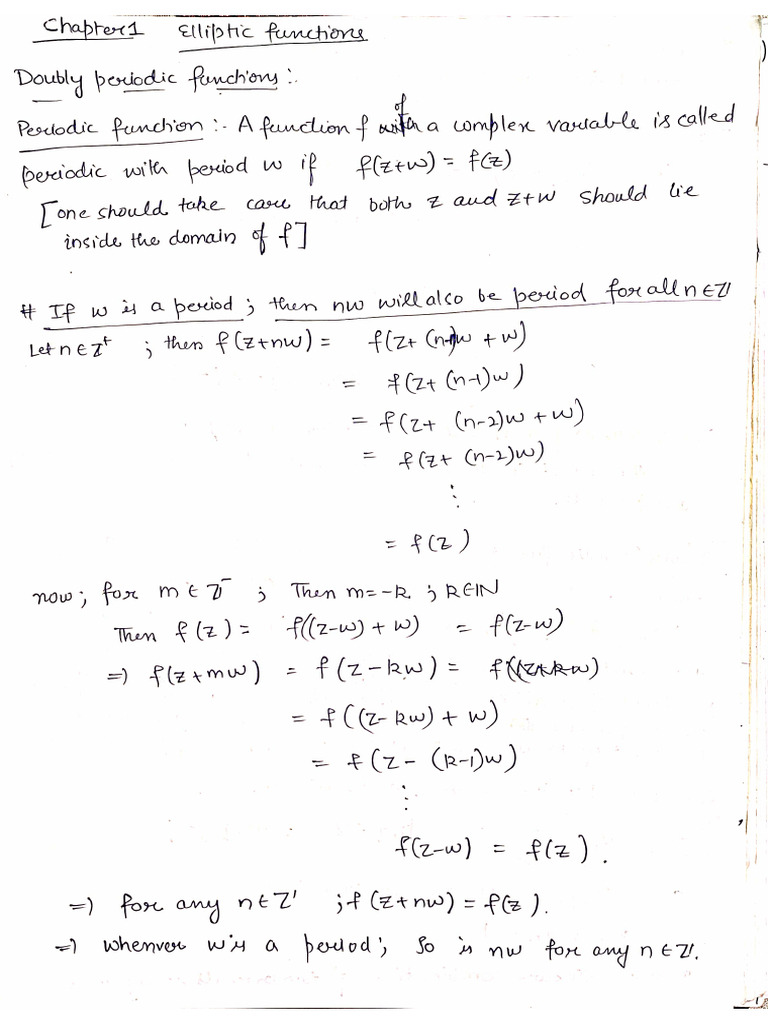 Chapter 1 Elliptic functions
Doubly periodic functions :.
Periodic function :- A function f of a complex variable is called
periodic with period w if f(z+w) = f(z)
[one should take care that both z and z+w should lie
inside the domain of f]
# If w is a period ; then nw will also be period for all n∈ℤ
Let n∈ℤ⁺ ; then f(z+nw) = f(z+ (n-1)w + w)
= f(z+ (n-1)w)
= f(z+ (n-2)w + w)
= f(z+ (n-2)w)
⋮
= f(z)
now ; for m ∈ ℤ⁻ ; Then m=-k ; k∈ℕ
Then f(z) = f((z-w) + w) = f(z-w)
=) f(z+mw) = f(z-kw) =
= f((z-kw) + w)
= f(z- (k-1)w)
⋮
f(z-w) = f(z).
=) for any n∈ℤ ; f(z+nw) = f(z).
=) whenver w is a period ; so is nw for any n∈ℤ.